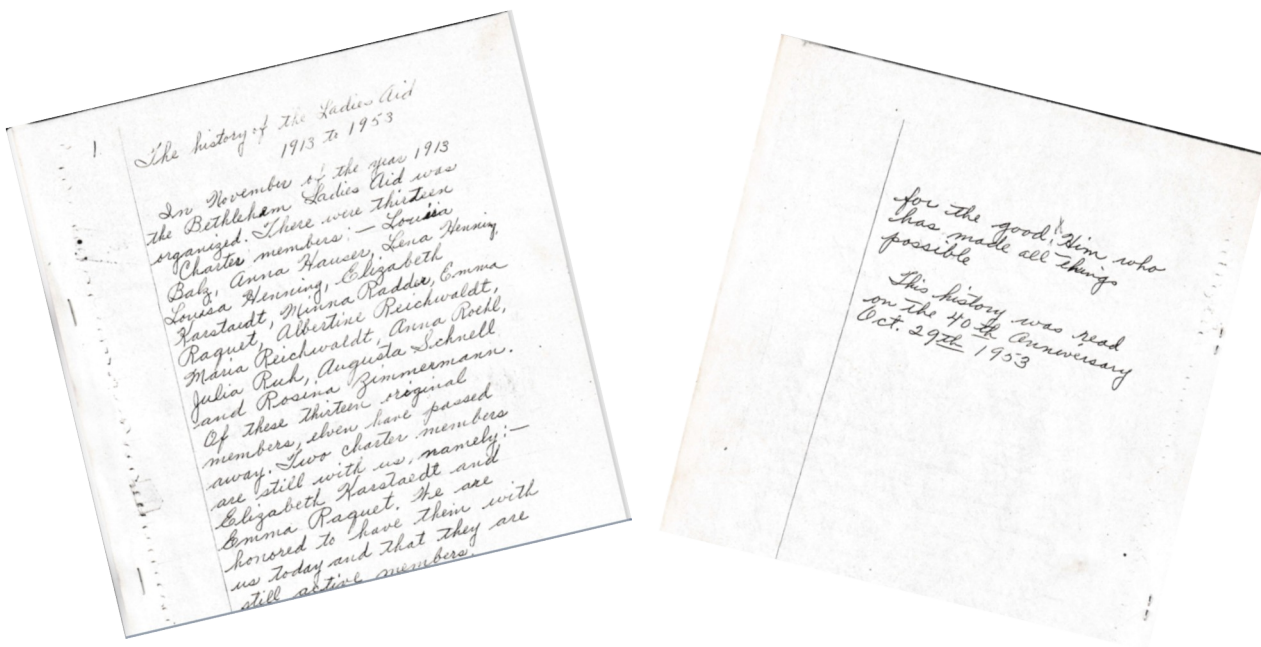 1.
The history of the Ladies Aid
1913 to 1953
In November of the year 1913
the Bethlehem Ladies Aid was
organized. There were thirteen
Charter members :— Louisa
Balz, Anna Hauser, Lena Henning,
Louisa Henning, Elizabeth
Karstaedt, Minna Radder, Emma
Raquet, Albertine Reichwaldt,
Maria Reichwaldt, Anna Roehl,
Julia Ruh, Augusta Schnell
and Rosina Zimmermann.
Of these thirteen original
members, elven have passed
away. Two charter members
are still with us, namely:—
Elizabeth Karstaedt and
Emma Raquet. We are
honored to have them with
us today and that they are
still active members.
for the good, Him who
has made all things
possible
This history was read
on the 40th Anniversary
Oct. 29th 1953